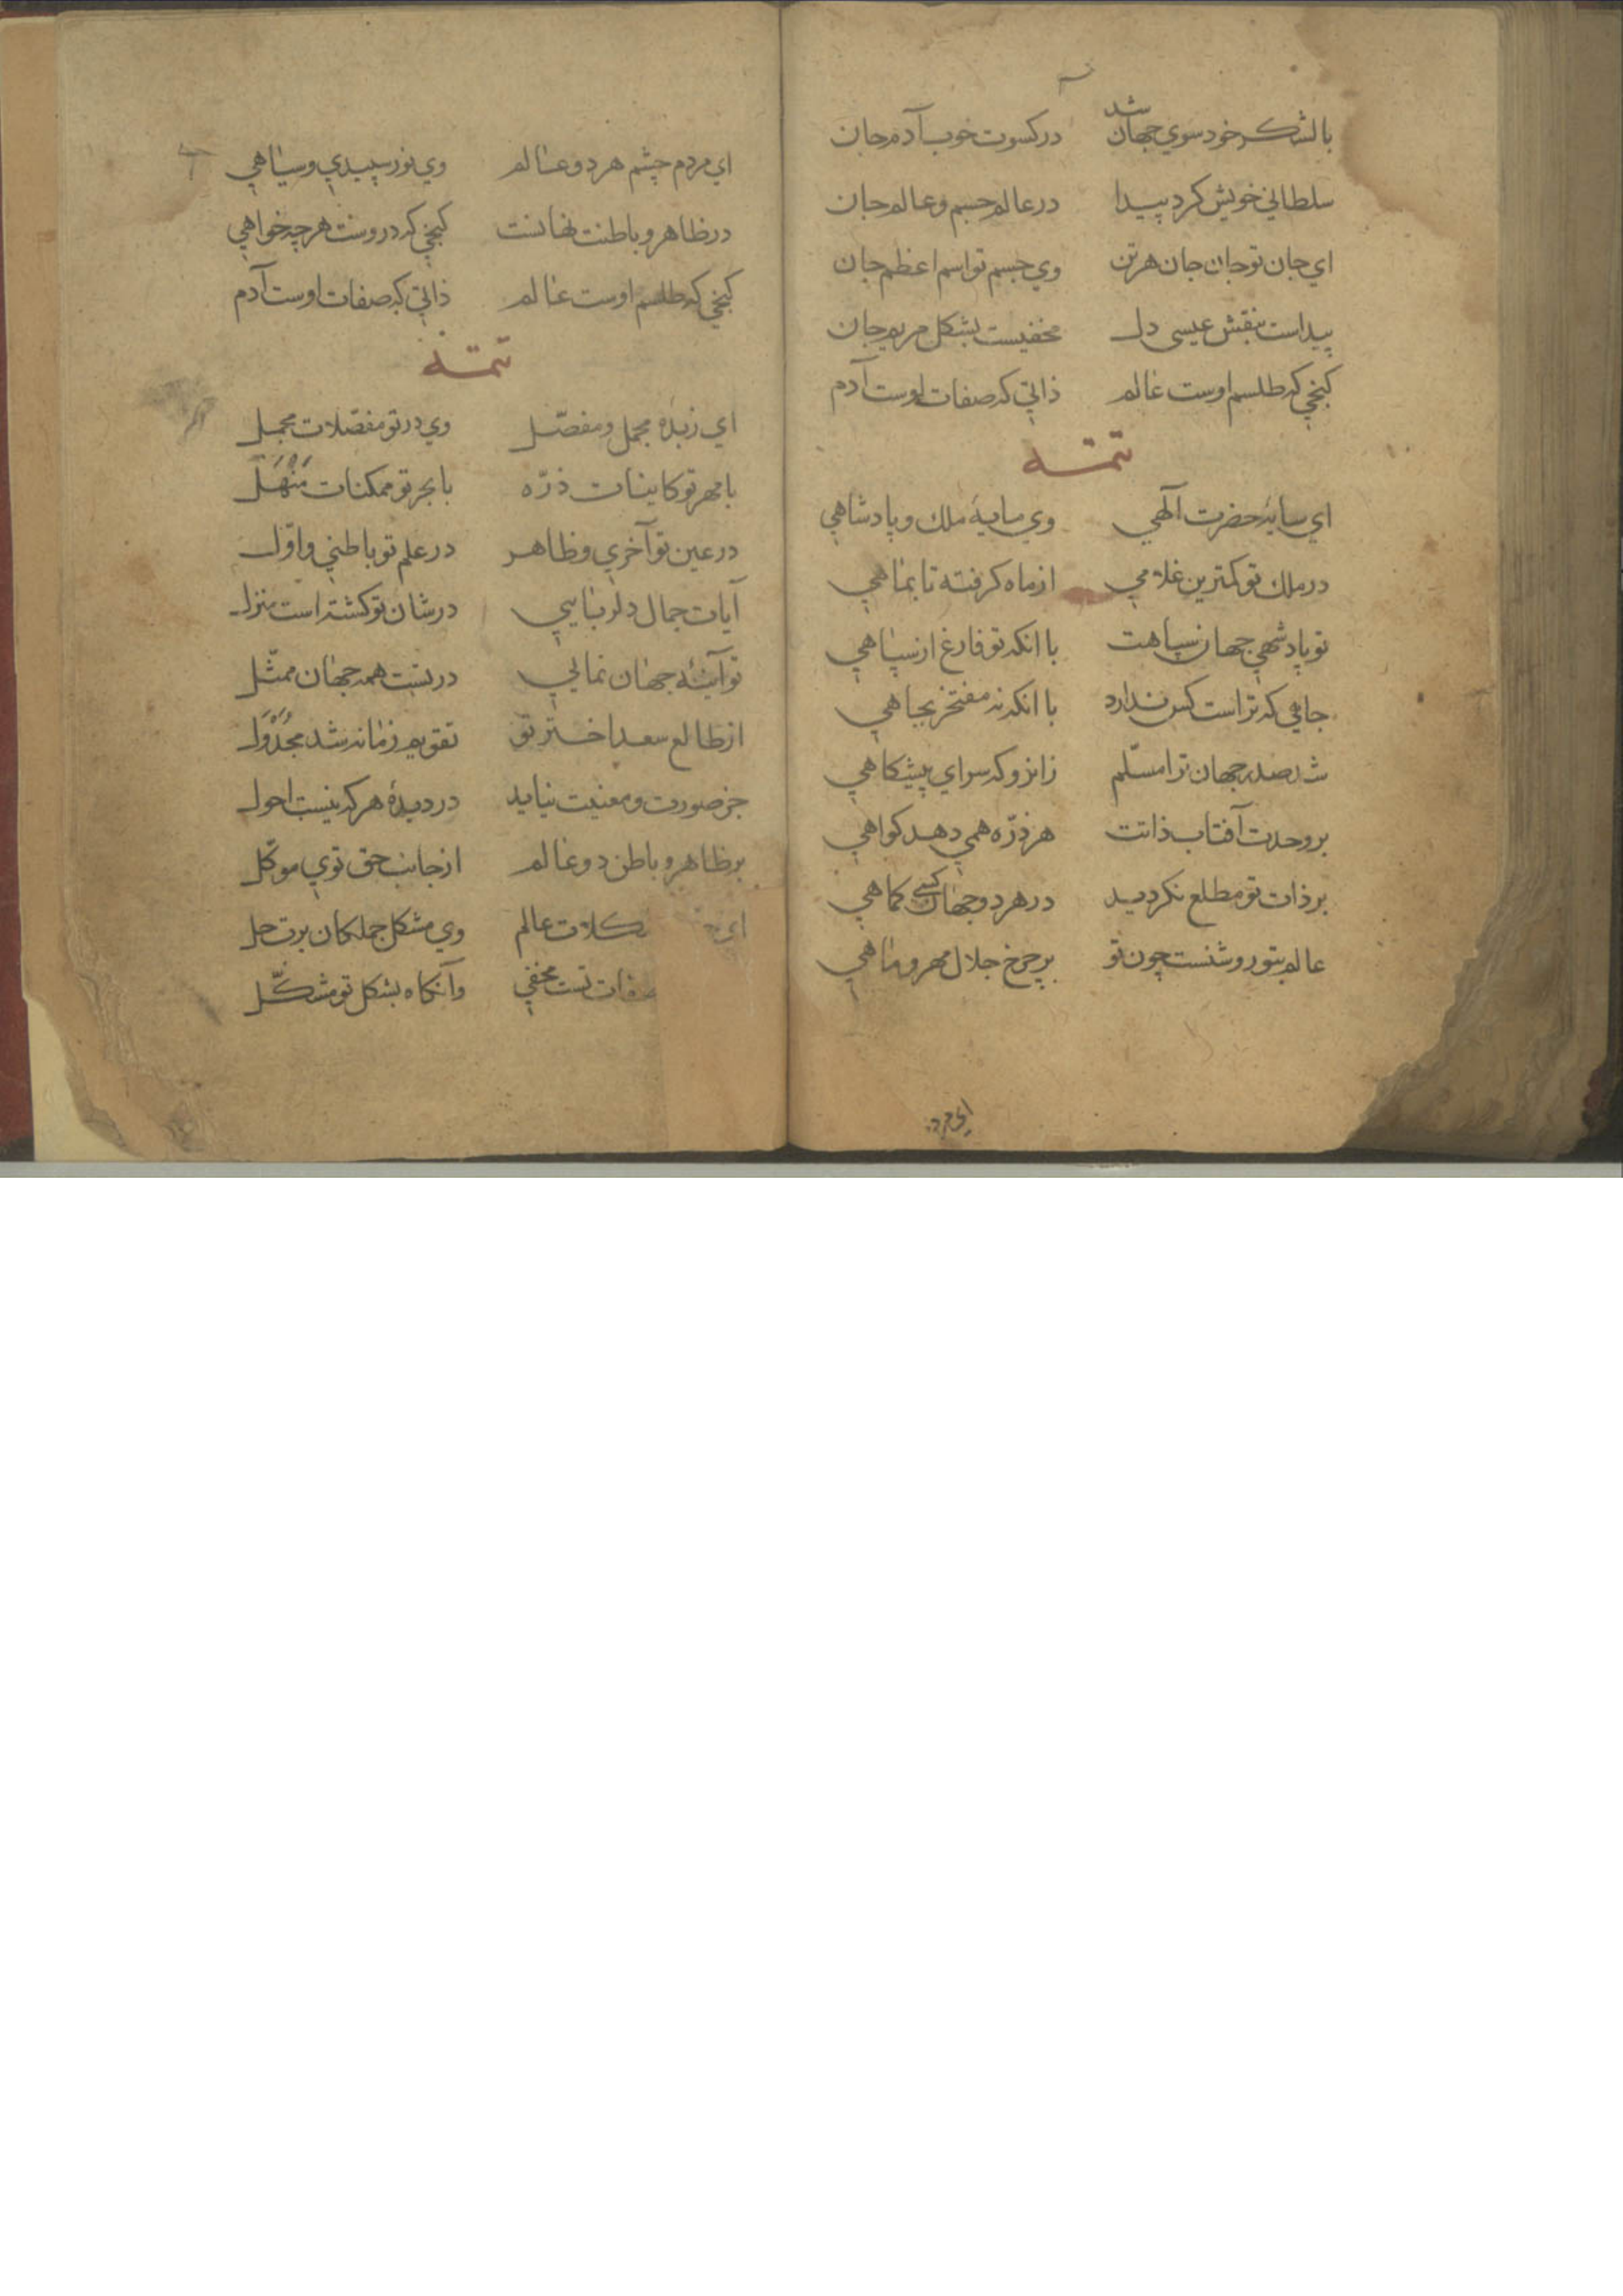 بالشکر خود سوي جهان شد در کسوت خوب آدم جان
سلطاني خويش کرد پيدا در عالم جسم و عالم جان
اي جان تو جان جان هر تن وي جسم تو اسم اعظم جان
پيداست بنقش عيسى دل مخفيست بشکل مريم جان
کنجي که طلسم اوست عالم ذاتي که صفات اوست آدم
تتمه
اي سايهٔ حضرت آلهي وي سايهٔ ملك و پادشاهي
در ملك تو کمترين غلامي از ماه کرفته تا بماهي
تو پادشهي جهان سپاهت با انکه تو فارغ از سپاهي
جاهي که تراست کس ندارد با انکه نه مفتخر بجاهي
شد صدر جهان ترا مسلّم زانرو که سراي پيشکاهي
بر وحدت آفتاب ذاتت هر ذرّه همي دهد کواهي
بر ذات تو مطلع نکرديد در هر دو جهان کسي کماهي
عالم بتو روشنست چون تو بر چرخ جلال مهر و ماهي
اي مردم
اي مردم چشم هر دو عالم وي نور سپيدي و سياهي
در ظاهر و باطنت نهانست کنجي که دروست هرچه خواهي
کنجي که طلسم اوست عالم ذاتي که صفات اوست آدم
تتمه
اي زبدهٔ مجمل و مفصّل وي در تو مفصّلات مجمل
با مهر تو کاينات ذرّه با بحر تو ممکنات مَنْهَل
در عين تو آخري و ظاهر در علم تو باطني و اوّل
آيات جمال دلربايي در شان تو کشته است منزل
تو آينهٔ جهان نمايي در تست همه جهان ممثّل
از طالع سعد اختر تو تقويم زمانه شد مُجَدْوَل
جز صورت و معنيت نيايد در ديدهٔ هر که نيست احول
بر ظاهر و باطن دو عالم از جانب حق توي موکّل
اي مشکلات عالم وي مشکل جملکان برت حل
صفات تست مخفي وآنکاه بشکل تو مشکّل